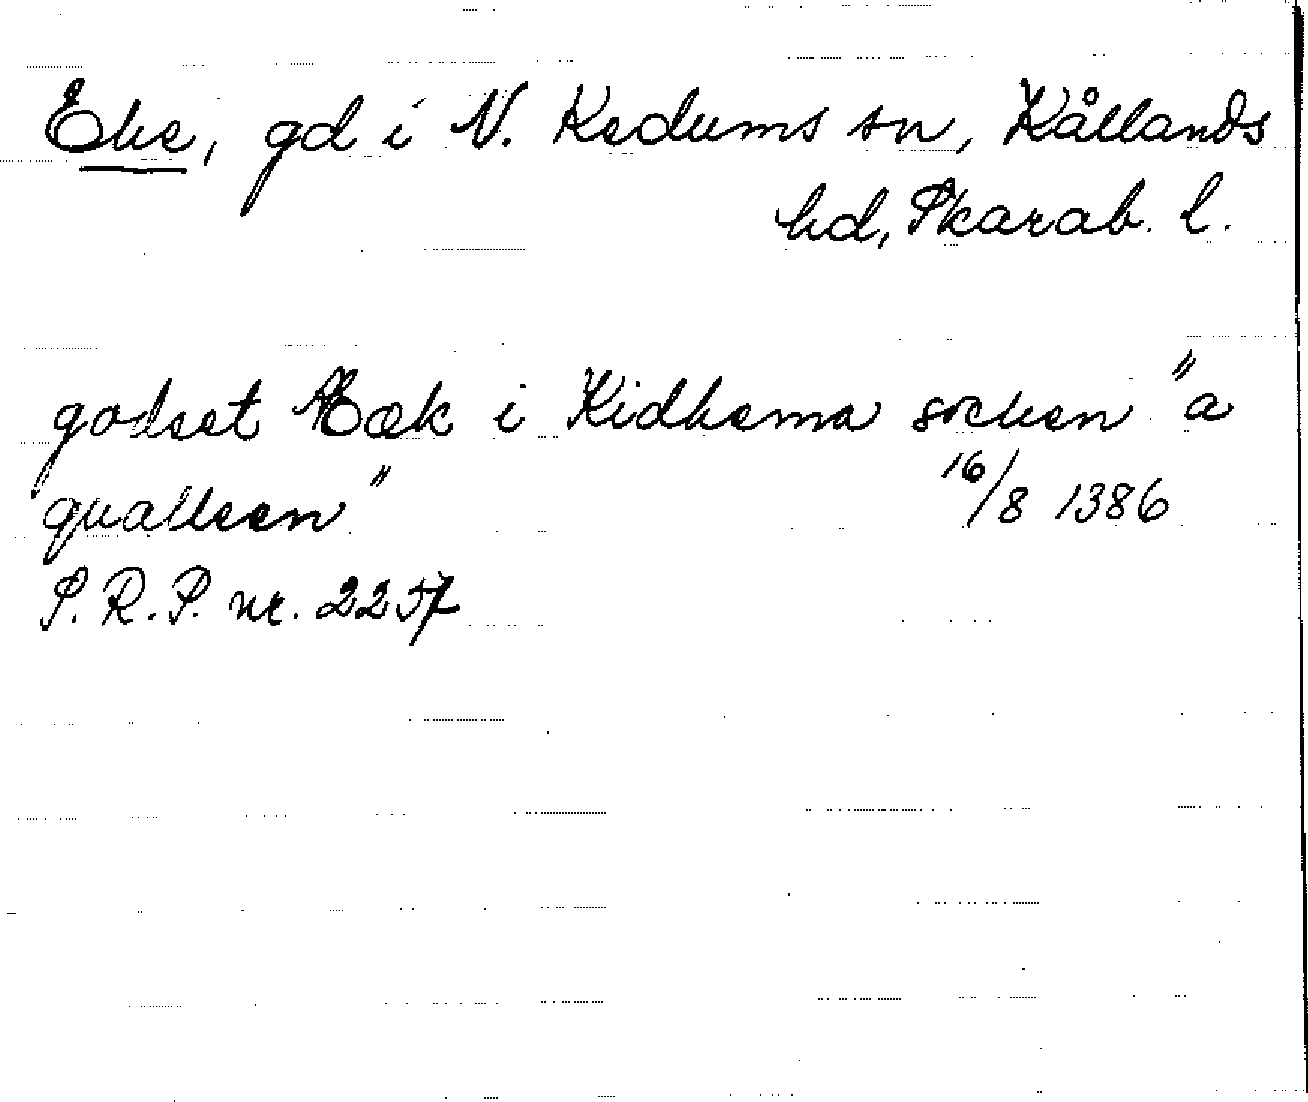 Eke, gd i N. Kedums sn, Kållands
hd, Skarab. l.
godset Eæk i Kidhema socken "a
qualleen"
16/8 1386
S.R.P. nr. 2257